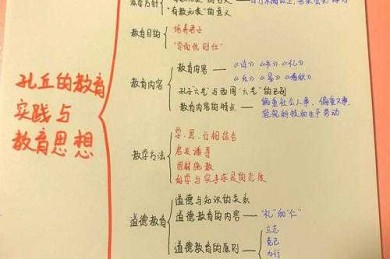 孔丘的教育
实践与
教育思想
"有教无类"的意义
教育目的
培养君子
"学而优则仕"
教育内容
教育内容
《诗》《书》《礼》
《乐》《易》《春秋》
孔子"六艺"与西周"六艺"的区别
教育内容的特点
偏重社会人事、偏重文事、
轻视科技和生产劳动
教学方法
学、思、行相结合
启发诱导
因材施教
好学与实事求是的态度
道德教育
道德与知识的关系
道德教育的内容
"礼"和"仁"
道德教育的原则
立志
克己
力行